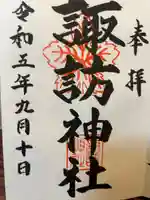 奉拝
諏訪神社
令和五年九月十日